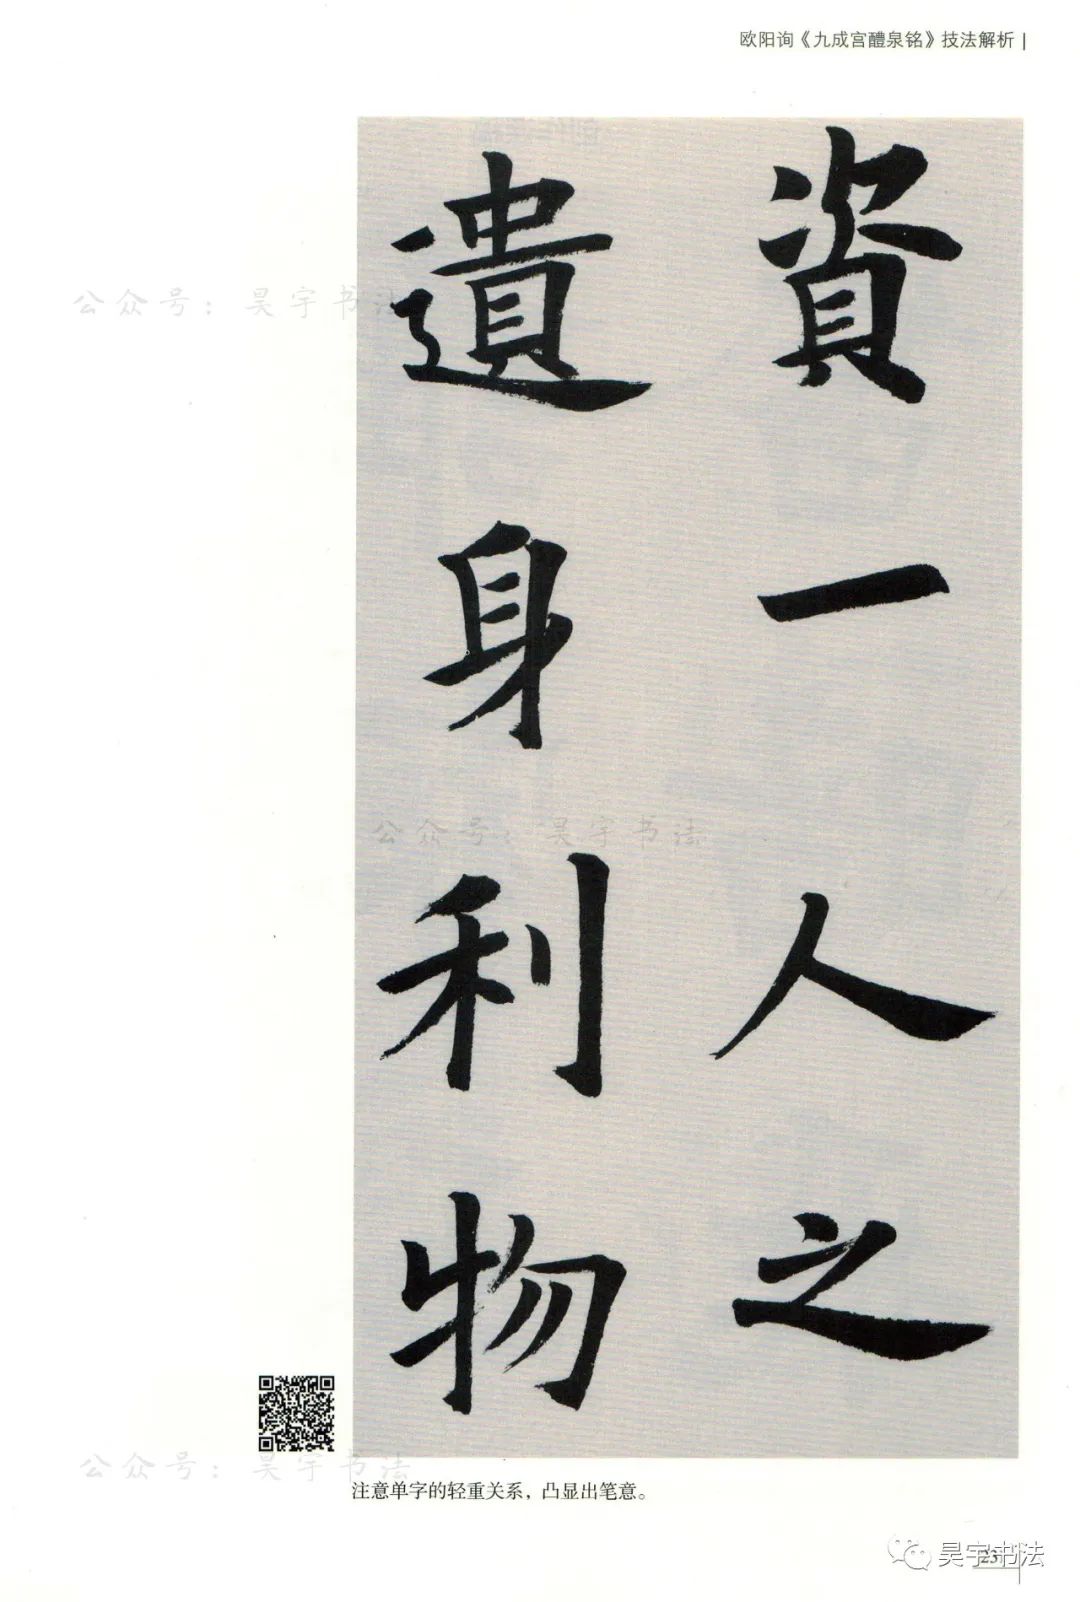 欧阳询《九成宫醴泉铭》技法解析|
資一人之
遺身利物
公众号：昊宇书法
公众号：昊宇书法
公众号：昊宇书法
注意单字的轻重关系，凸显出笔意。
昊宇书法
23